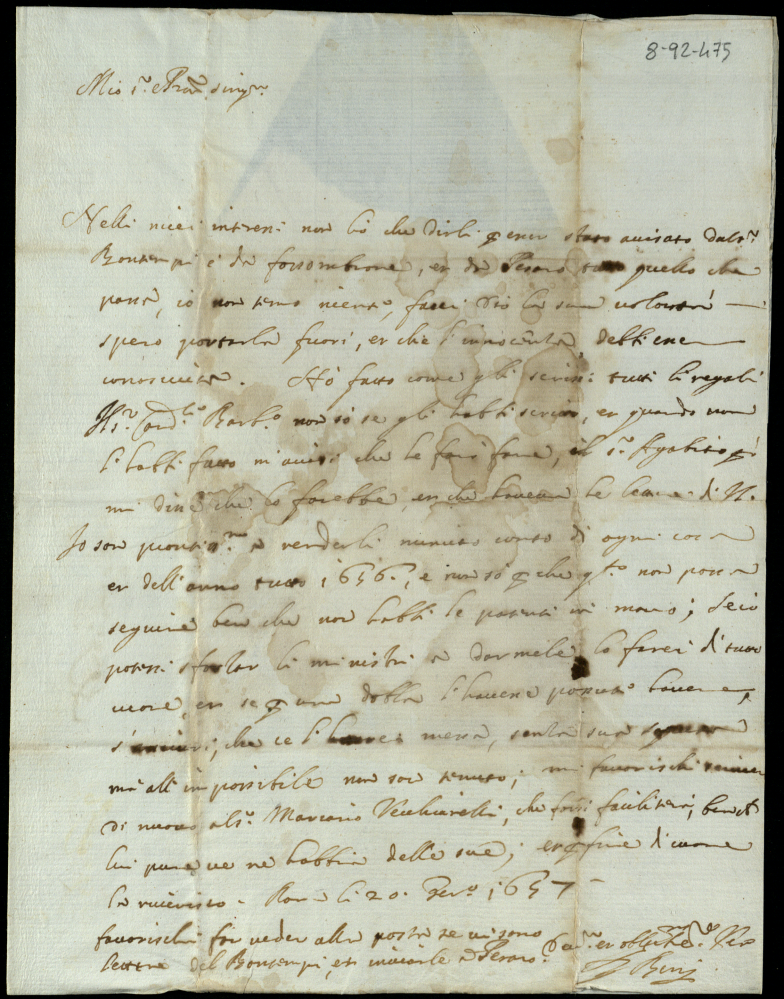 8-92-475
Mio S.r e Pron sing.r
Nelli miei interessi non hò che dirli p esser stato avisato dal S.r
Bontempi e da fossombrone, et da Pesaro tutto quello che
passa, io non temo niente, facci Dio la sua volontà
spero portarla fuori, et che l'innocenza debbi esser
conosciuta. Hò fatto come gli scrissi tutti li regali
Il S.r Card.l Barb.o non sò se gli habbi scritto, et quando non
l'habbi fatto m'avisi che le farò fare, il S.r Agabito
mi disse che lo farebbe, et che haveva le lettere di N.
Io son prontiss.mo a renderli minuto conto di ogni cosa
et dell'anno tutto 1656, e non sò p che q.to non possa
seguire ben che non habbi le patenti in mano; se io
potessi sforzar li ministri a darmele lo farei di tutto
cuore, et se p una dobla l'havesse potuto havere,
s'assicuri, che ce l'haverei messa, senza sua saputa
ma all'impossibile non son tenuto; mi favorischi scriver
di nuovo al S.r Marcario Vecchiarelli, che forsi faciliterà, benche
lui pure ve ne habbia delle sue; et p fine di cuore
la riverisco. Roma li 20. 1657
favorischi far veder alla posta se vi sono
lettere del Bontempi, et inviarle a Pesaro.